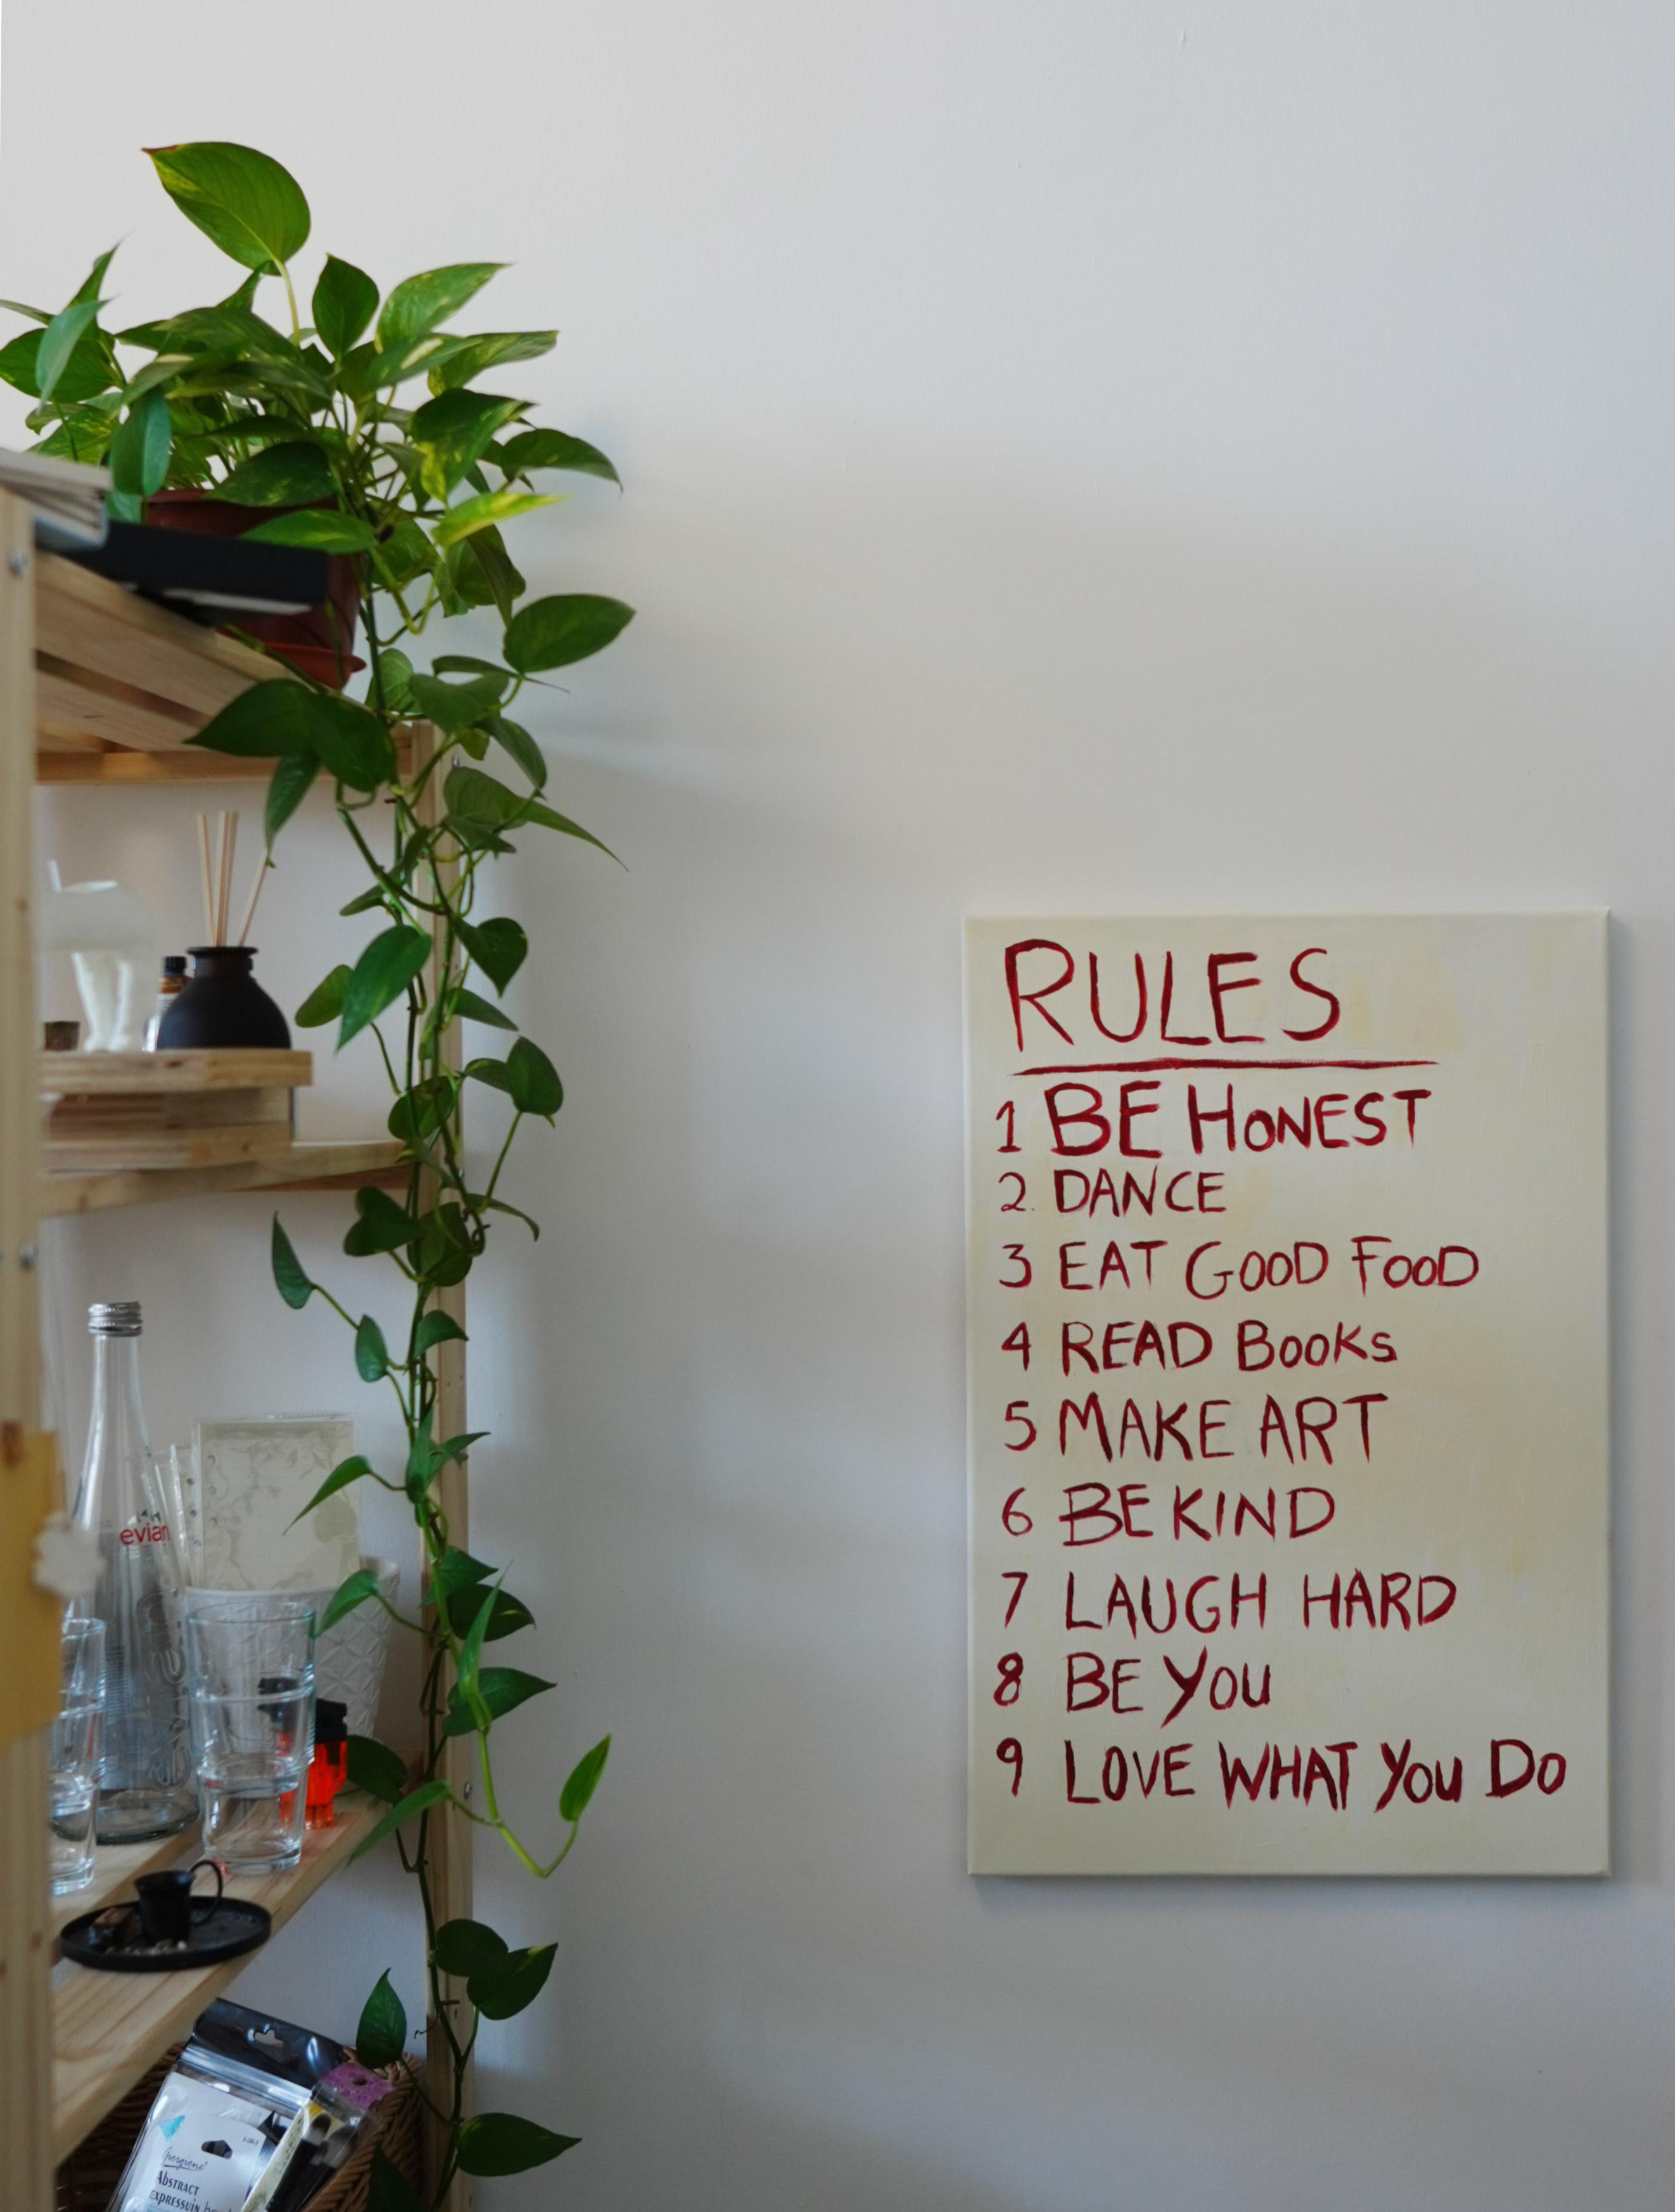 RULES
1 BE HONEST
2. DANCE
3 EAT GOOD FOOD
4 READ BOOKS
5 MAKE ART
6 BE KIND
7 LAUGH HARD
8 BE YOU
9 LOVE WHAT YOU DO
evian
evian
ABSTRACT